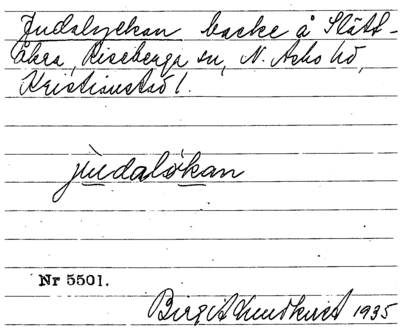 Judalyckan, backe å Slätt-
åkra, Riseberga sn, N. Åsbo hd,
Kristianstad l.
judalókan
Nr 5501.
Birgit Lundkvist 1935